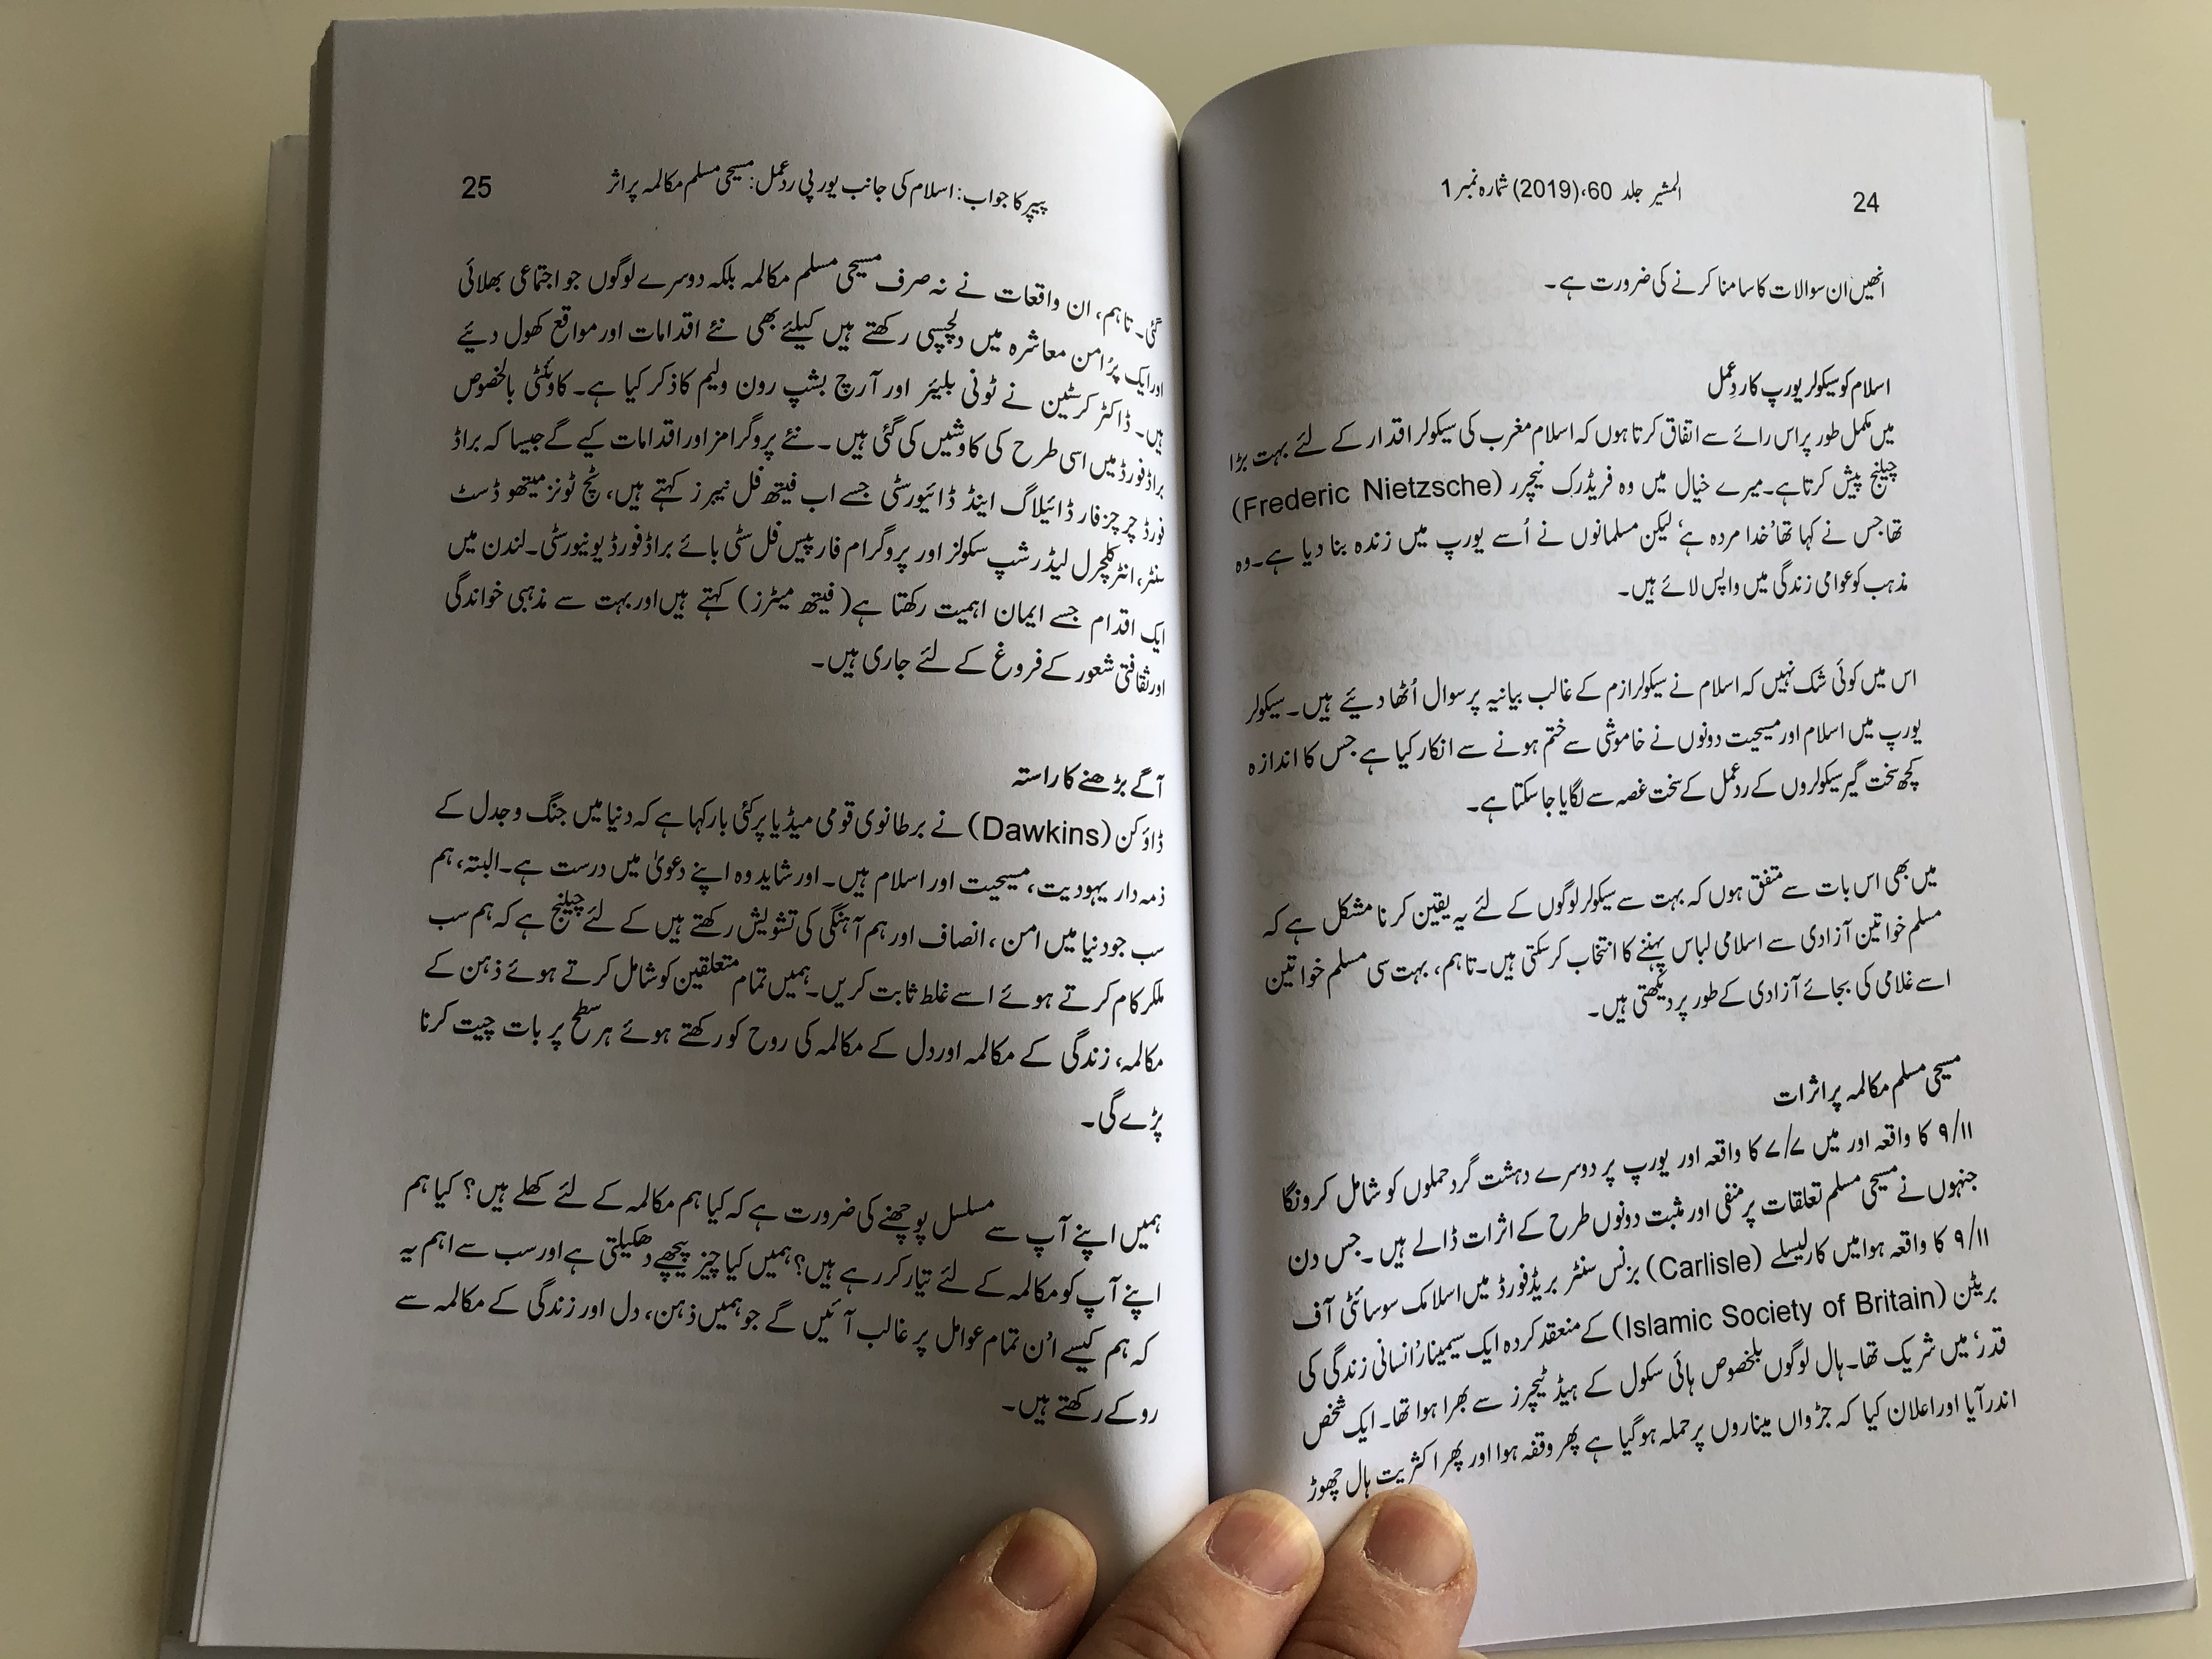 24
المشیر جلد 60،(2019) شمارہ نمبر 1
انھیں ان سوالات کا سامنا کرنے کی ضرورت ہے۔
اسلام کو سیکولر یورپ کا ردِعمل
میں مکمل طور پر اس رائے سے اتفاق کرتا ہوں کہ اسلام مغرب کی سیکولر اقدار کے لئے بہت بڑا
چیلنج پیش کرتا ہے۔ میرے خیال میں وہ فریڈرک نیچرر (Frederic Nietzsche)
تھا جس نے کہا تھا ’خدا مردہ ہے‘ لیکن مسلمانوں نے اُسے یورپ میں زندہ بنا دیا ہے۔ وہ
مذہب کو عوامی زندگی میں واپس لائے ہیں۔
اس میں کوئی شک نہیں کہ اسلام نے سیکولرازم کے غالب بیانیہ پر سوال اُٹھا دیئے ہیں۔ سیکولر
یورپ میں اسلام اور مسیحیت دونوں نے خاموشی سے ختم ہونے سے انکار کیا ہے جس کا اندازہ
کچھ سخت گیر سیکولروں کے ردعمل کے سخت غصہ سے لگایا جا سکتا ہے۔
میں بھی اس بات سے متفق ہوں کہ بہت سے سیکولر لوگوں کے لئے یہ یقین کرنا مشکل ہے کہ
مسلم خواتین آزادی سے اسلامی لباس پہننے کا انتخاب کر سکتی ہیں۔ تاہم، بہت سی مسلم خواتین
اسے غلامی کی بجائے آزادی کے طور پر دیکھتی ہیں۔
مسیحی مسلم مکالمہ پر اثرات
۹/۱۱ کا واقعہ اور میں ۷/۷ کا واقعہ اور یورپ پر دوسرے دہشت گرد حملوں کو شامل کرونگا
جنہوں نے مسیحی مسلم تعلقات پر منفی اور مثبت دونوں طرح کے اثرات ڈالے ہیں۔ جس دن
۹/۱۱ کا واقعہ ہوا میں کارلیسلے (Carlisle) بزنس سنٹر بریڈفورڈ میں اسلامک سوسائٹی آف
بریٹن (Islamic Society of Britain) کے منعقد کردہ ایک سیمینار ’انسانی زندگی کی
قدر‘ میں شریک تھا۔ ہال لوگوں بلخصوص ہائی سکول کے ہیڈ ٹیچرز سے بھرا ہوا تھا۔ ایک شخص
اندر آیا اور اعلان کیا کہ جڑواں میناروں پر حملہ ہو گیا ہے پھر وقفہ ہوا اور پھر اکثریت ہال چھوڑ
پیپر کا جواب: اسلام کی جانب یورپی ردعمل: مسیحی مسلم مکالمہ پر اثر
25
گئی۔ تاہم، ان واقعات نے نہ صرف مسیحی مسلم مکالمہ بلکہ دوسرے لوگوں جو اجتماعی بھلائی
اور ایک پُر امن معاشرہ میں دلچسپی رکھتے ہیں کیلئے بھی نئے اقدامات اور مواقع کھول دیئے
ہیں۔ ڈاکٹر کرسٹین نے ٹونی بلیئر اور آرچ بشپ رون ولیم کا ذکر کیا ہے۔ کاوئنٹی بالخصوص
براڈفورڈ میں اسی طرح کی کاوشیں کی گئی ہیں۔ نئے پروگرامز اور اقدامات کیے گے جیسا کہ براڈ
فورڈ چرچز فار ڈائیلاگ اینڈ ڈائیورسٹی جسے اب فیتھ فل نیبرز کہتے ہیں، ٹچ ٹونز میتھو ڈسٹ
سنٹر، انٹر کلچرل لیڈرشپ سکولز اور پروگرام فار پیس فل سٹی بائے براڈفورڈ یونیورسٹی۔ لندن میں
ایک اقدام جسے ایمان اہمیت رکھتا ہے (فیتھ میٹرز) کہتے ہیں اور بہت سے مذہبی خواندگی
اور ثقافتی شعور کے فروغ کے لئے جاری ہیں۔
آگے بڑھنے کا راستہ
ڈاؤکن (Dawkins) نے برطانوی قومی میڈیا پر کئی بار کہا ہے کہ دنیا میں جنگ و جدل کے
ذمہ دار یہودیت، مسیحیت اور اسلام ہیں۔ اور شاید وہ اپنے دعویٰ میں درست ہے۔ البتہ، ہم
سب جو دنیا میں امن، انصاف اور ہم آہنگی کی تشویش رکھتے ہیں کے لئے چیلنج ہے کہ ہم سب
ملکر کام کرتے ہوئے اسے غلط ثابت کریں۔ ہمیں تمام متعلقین کو شامل کرتے ہوئے ذہن کے
مکالمہ، زندگی کے مکالمہ اور دل کے مکالمہ کی روح کو رکھتے ہوئے ہر سطح پر بات چیت کرنا
پڑے گی۔
ہمیں اپنے آپ سے مسلسل پوچھنے کی ضرورت ہے کہ کیا ہم مکالمہ کے لئے کھلے ہیں؟ کیا ہم
اپنے آپ کو مکالمہ کے لئے تیار کر رہے ہیں؟ ہمیں کیا چیز پیچھے دھکیلتی ہے اور سب سے اہم یہ
کہ ہم کیسے اُن تمام عوامل پر غالب آئیں گے جو ہمیں ذہن، دل اور زندگی کے مکالمہ سے
روکے رکھتے ہیں۔